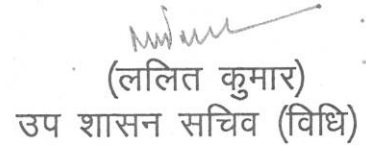 (ललित कुमार)
उप शासन सचिव (विधि)